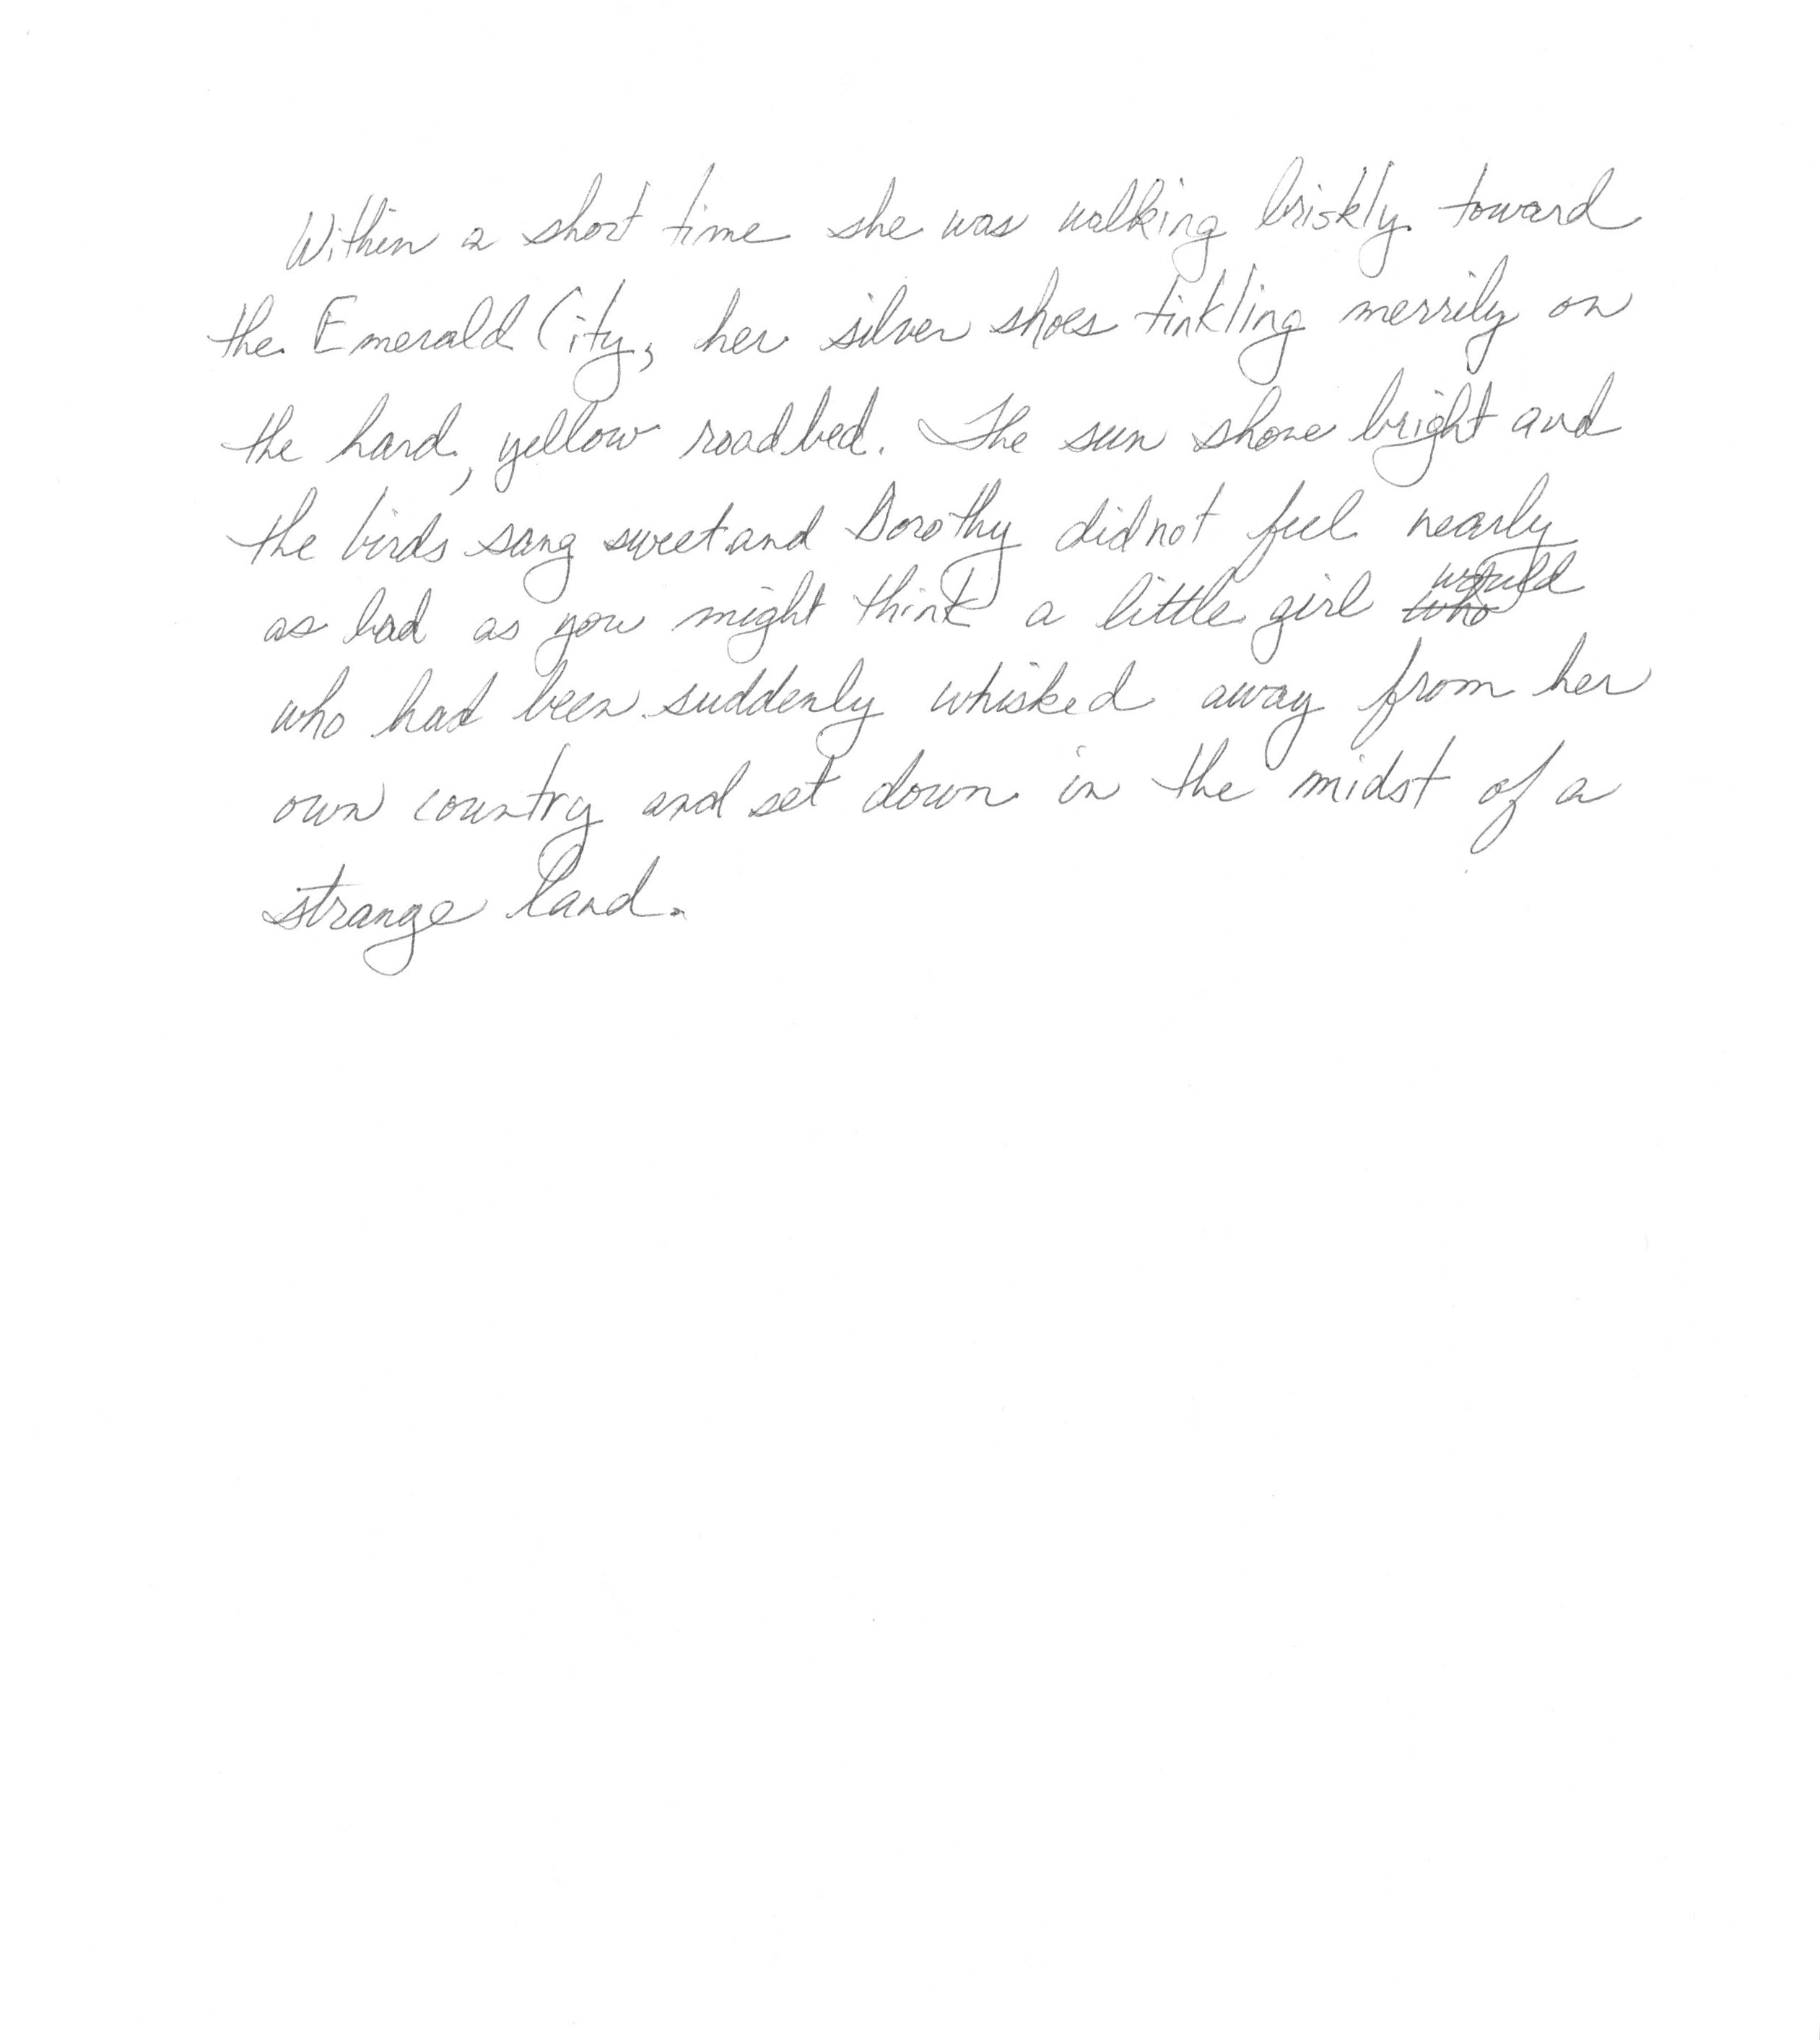 Within a short time she was walking briskly toward
the Emerald City, her silver shoes tinkling merrily on
the hard, yellow roadbed. The sun shone bright and
the birds sang sweet and Dorothy did not feel nearly
as bad as you might think a little girl ~~who~~ would
who had been suddenly whisked away from her
own country and set down in the midst of a
strange land.